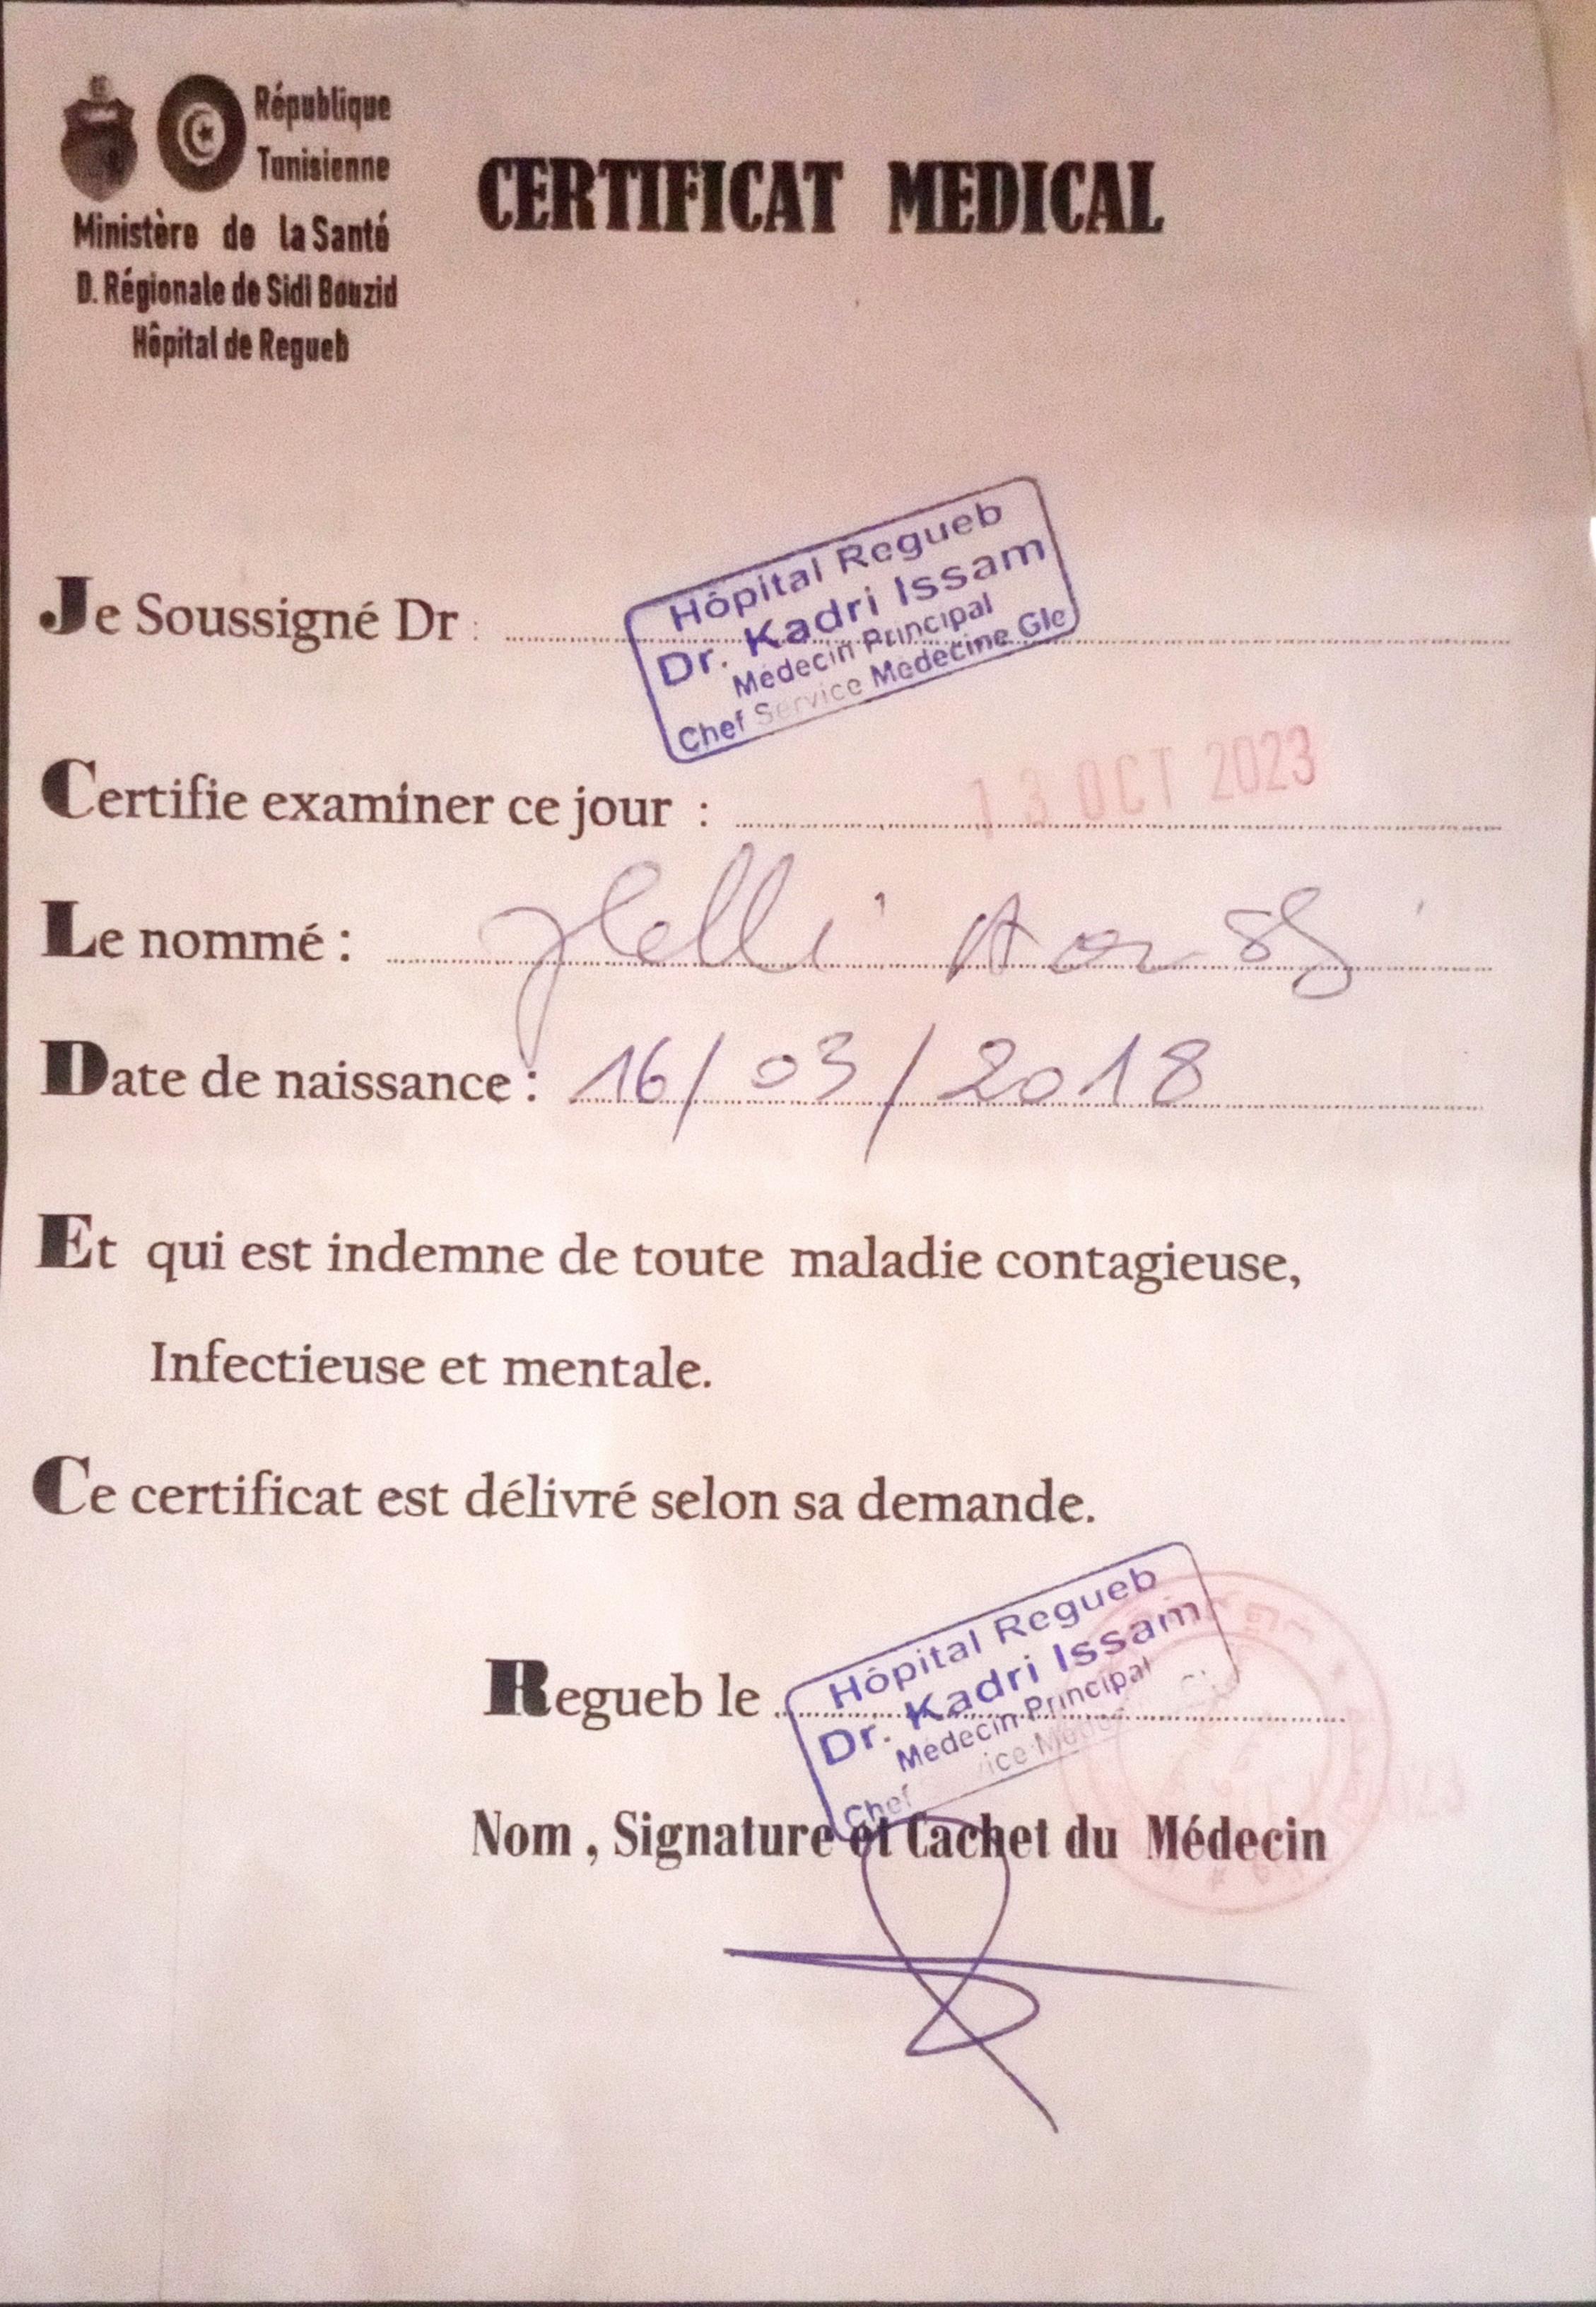 République
Tunisienne
Ministère de la Santé
D. Régionale de Sidi Bouzid
Hôpital de Regueb
CERTIFICAT MEDICAL
Hôpital Regueb
Dr. Kadri Issam
Médecin Principal
Chef Service Médecine Gle
Je Soussigné Dr :
Certifie examiner ce jour : 13 OCT 2023
Le nommé :
Date de naissance : 16/03/2018
Et qui est indemne de toute maladie contagieuse,
Infectieuse et mentale.
Ce certificat est délivré selon sa demande.
Hôpital Regueb
Dr. Kadri Issam
Médecin Principal
Chef
Regueb le
Nom , Signature et Cachet du Médecin